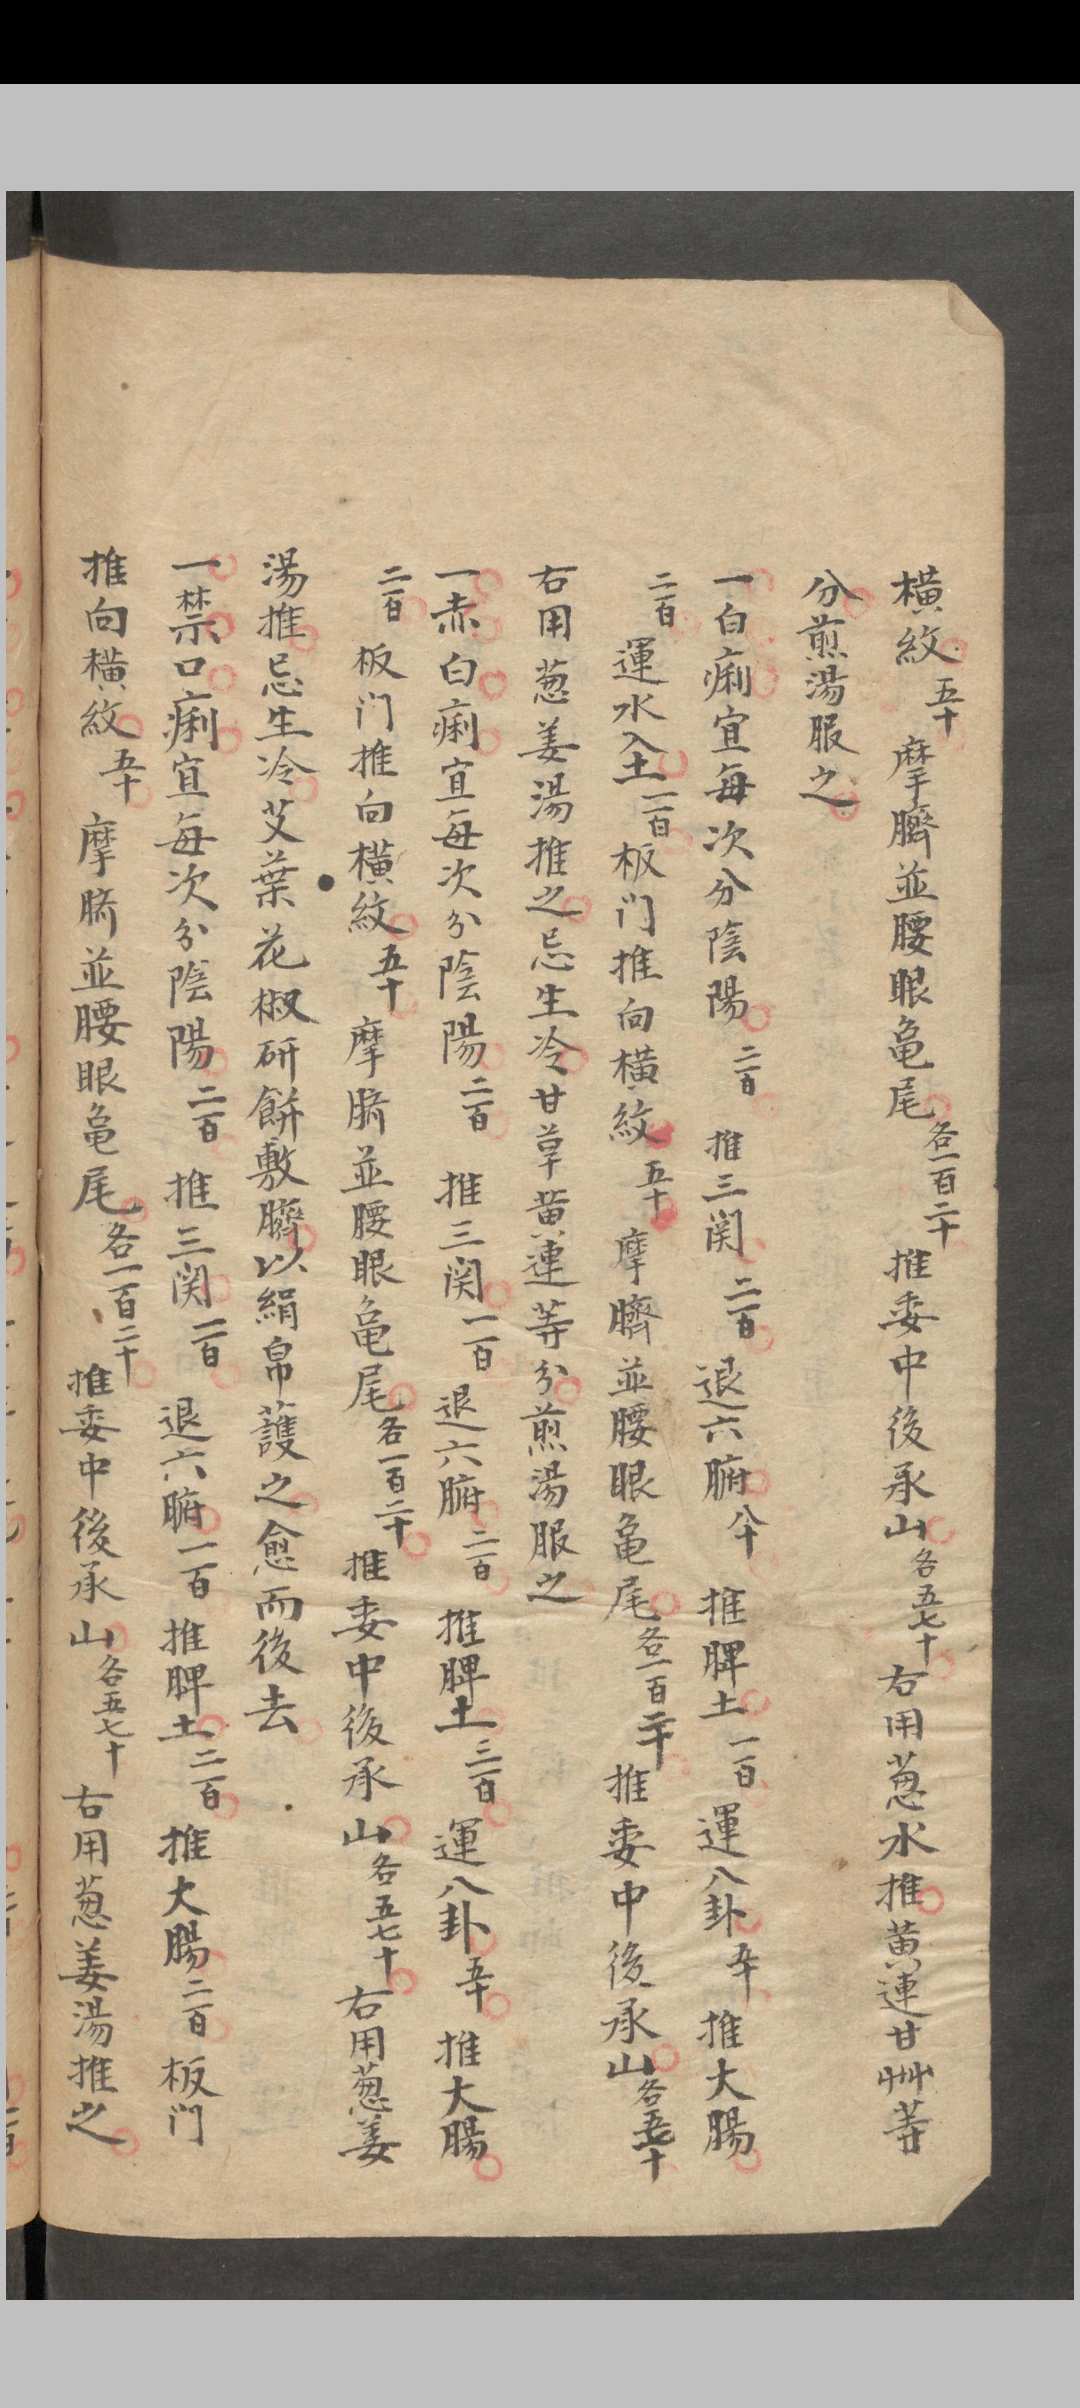 橫紋五十摩臍並腰眼龟尾各一百二十推委中後承山各五七十右用葱水推黄連甘艸等
分煎湯服之
一白痢宜每次分陰陽二百推三関二百退六腑八十推脾土一百運八卦五十推大腸
二百運水入土一百板门推向橫紋五十摩臍並腰眼龟尾各一百二十推委中後承山各五七十
右用葱姜湯推之忌生冷甘草黄連等分煎湯服之
一赤白痢宜每次分陰陽二百推三関一百退六腑二百推脾土三百運八卦五十推大腸
二百板门推向橫紋五十摩脐並腰眼龟尾各一百二十推委中後承山各五七十右用葱姜
湯推忌生冷艾葉花椒研餅敷臍以絹帛護之愈而後去
一禁口痢宜每次分陰陽二百推三関一百退六腑一百推脾土二百推大腸二百板门
推向橫紋五十摩脐並腰眼龟尾各一百二十推委中後承山各五七十右用葱姜湯推之